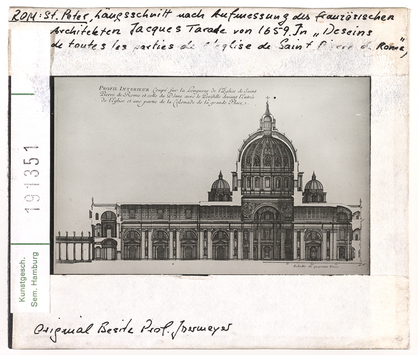 ROM: St. Peter, Längsschnitt nach Aufmessung des französischen
Architekten Jacques Tarade von 1659. In „Deseins
de toutes les parties de l'église de Saint Pierre de Rome",
PROFIL INTERIEUR Coupé sur la Longueur de l'Eglise de Saint
Pierre de Rome et celle du Dôme avec le Portique devant l'entrée
de l'Eglise et une partie de la Colonade de la grande Place.
191351
Kunstgesch.
Sem. Hamburg
Original Besitz Prof.